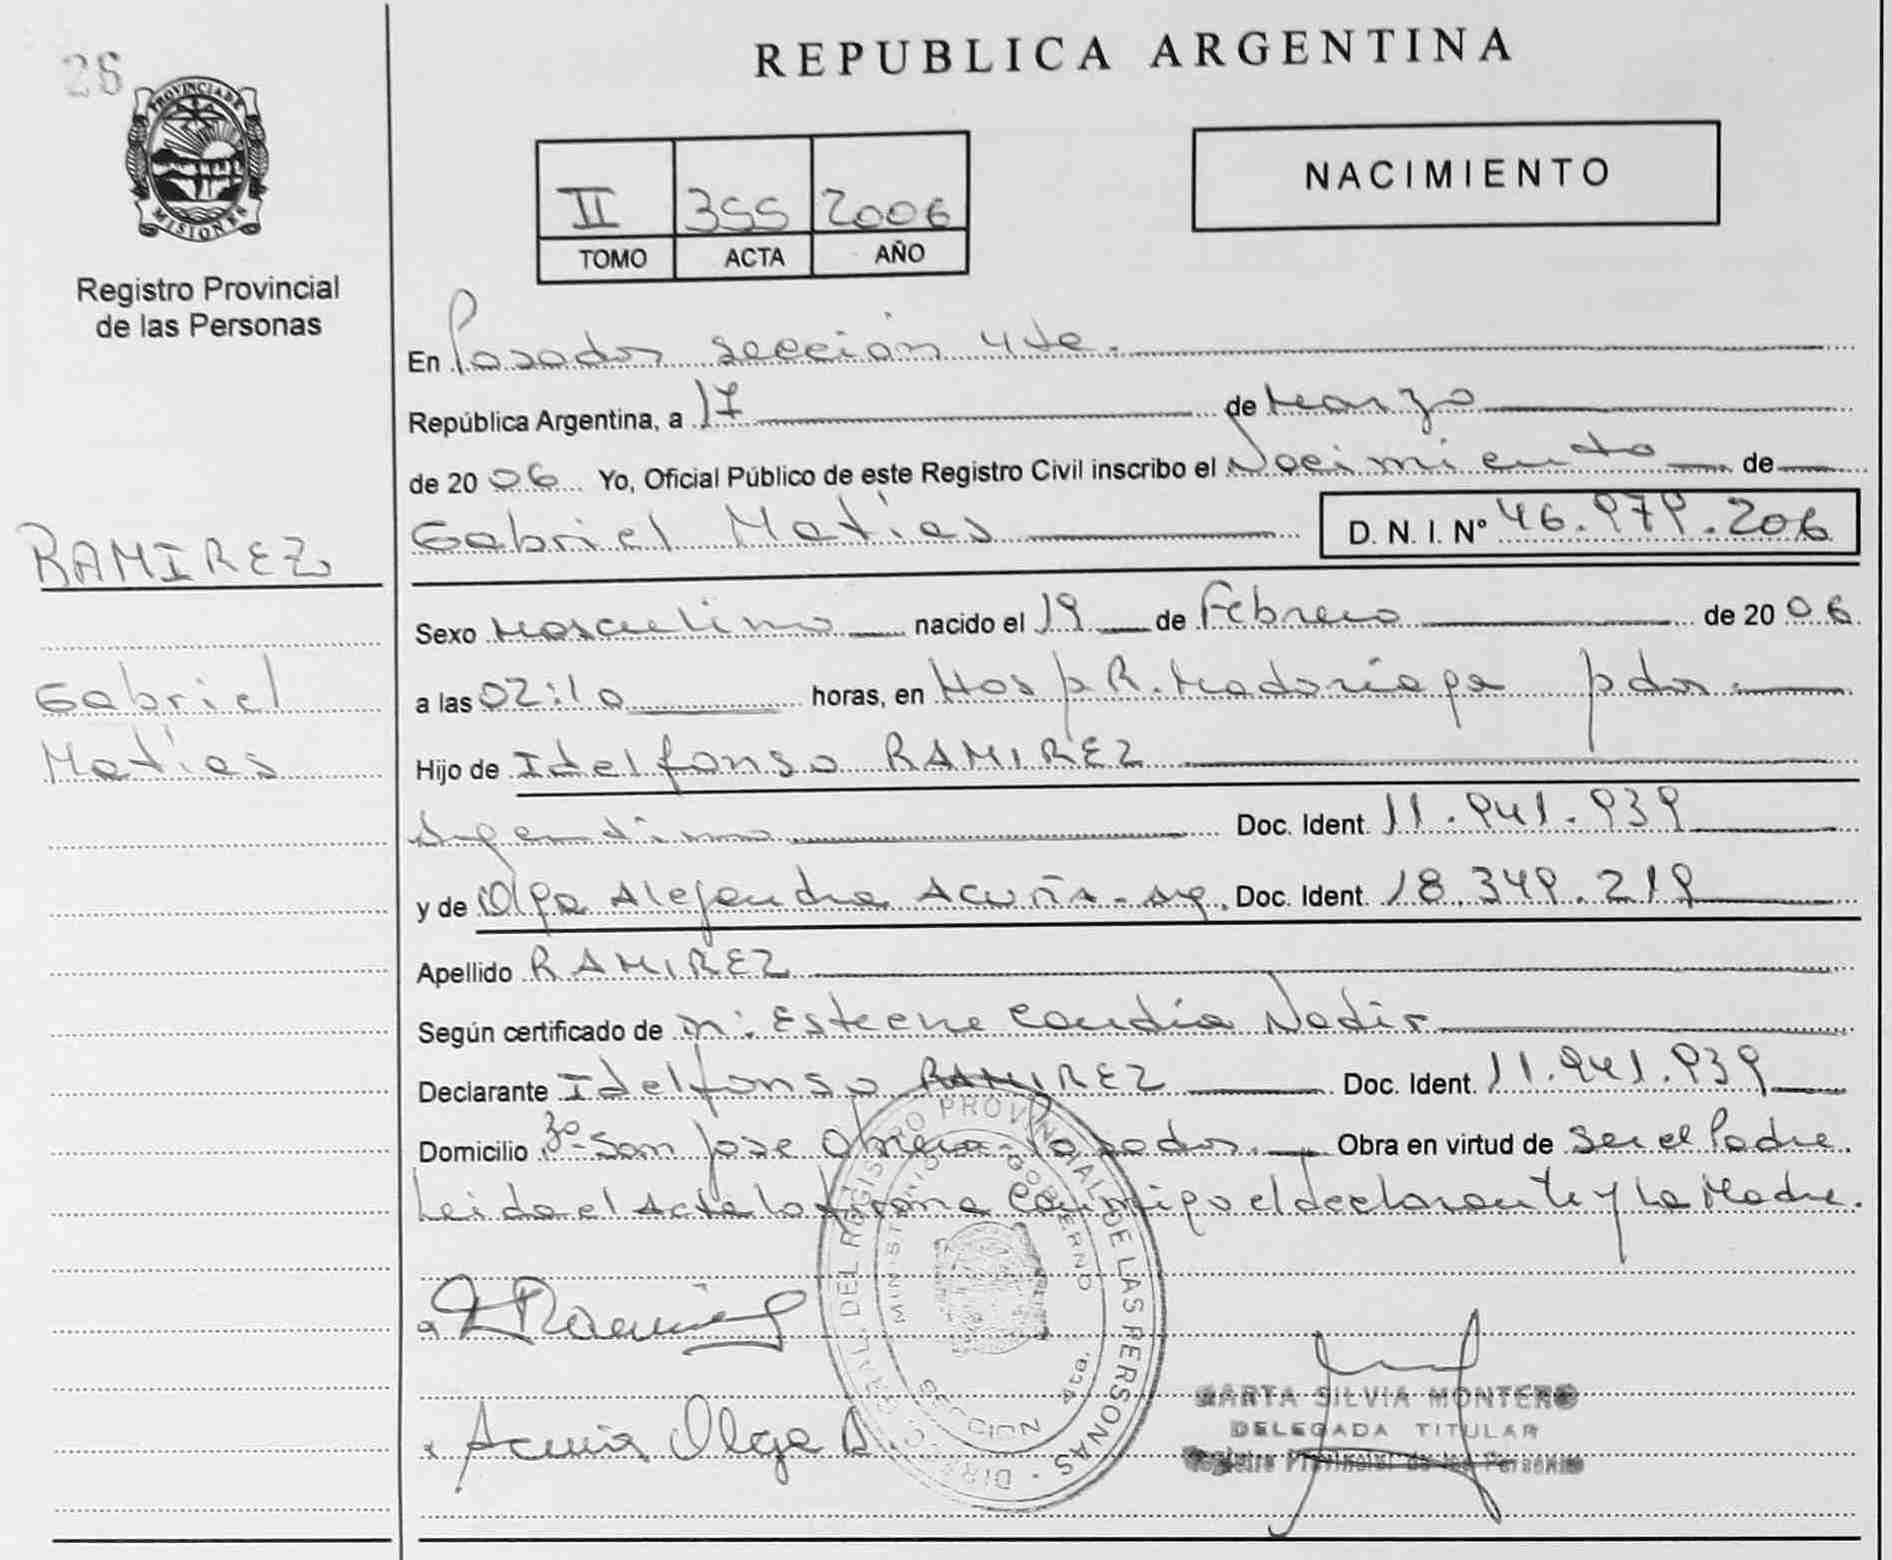 26
PROVINCIA DE
MISIONES
Registro Provincial
de las Personas
REPUBLICA ARGENTINA
II 355 2006
TOMO ACTA AÑO
NACIMIENTO
En Posadas sección 4ta.
República Argentina, a 17 de Marzo
de 2006 Yo, Oficial Público de este Registro Civil inscribo el Nacimiento de
Gabriel Matías D. N. I. N° 46.979.206
RAMIREZ
Gabriel
Matías
Sexo Masculino nacido el 19 de Febrero de 2006
a las 02:10 horas, en Hosp R. Madariaga pdas.
Hijo de Idelfonso RAMIREZ
Argentino Doc. Ident. 11.941.939
y de Olga Alejandra Acuña - arg. Doc. Ident. 18.349.219
Apellido RAMIREZ
Según certificado de Claudia Nadir
Declarante Idelfonso RAMIREZ Doc. Ident. 11.941.939
Domicilio San José Obrero - Posadas. Obra en virtud de ser el Padre.
Leida el Acta la firma conmigo el declarante y la Madre.
Ramirez
Acuña Olga A.
DIRECC. GRAL. DEL REGISTRO PROVINCIAL DE LAS PERSONAS
MINISTERIO GOBIERNO
SECCION 4ta.
MARTA SILVIA MONTERO
DELEGADA TITULAR
Registro Provincial de las Personas